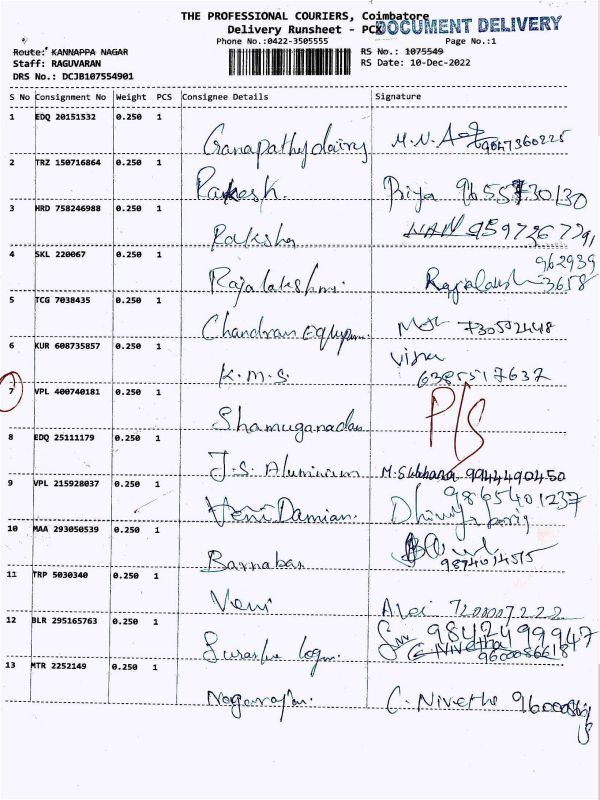 THE PROFESSIONAL COURIERS, Coimbatore
Delivery Runsheet - PCX
DOCUMENT DELIVERY
Phone No.:0422-3505555 Page No.:1
Route: KANNAPPA NAGAR RS No.: 1075549
Staff: RAGUVARAN RS Date: 10-Dec-2022
DRS No.: DCJB107554901
S No Consignment No Weight PCS Consignee Details Signature
1 EDQ 20151532 0.250 1
Ganapathy dairy M.N. 9047360225
2 TRZ 150716864 0.250 1
Rakesh. Priya 9655730130
3 HRD 758246988 0.250 1
Raksha
4 SKL 220067 0.250 1
Rajalakshmi. Rajalakshmi 962939
3658
5 TCG 7038435 0.250 1
Chandran Equipm.
6 KUR 608735857 0.250 1
K.M.S. 6385517637
7 VPL 400740181 0.250 1
Shamuganadan P/S
8 EDQ 25111179 0.250 1
J.S. Aluminium M.Subbana 9944490450
9 VPL 215928037 0.250 1
Veni Damian. 9865401237
10 MAA 293050539 0.250 1
Barnabas
11 TRP 5030340 0.250 1
Veni
12 BLR 295165763 0.250 1
9842499947
C. Nivetha
9600086618
13 MTR 2252149 0.250 1
Nagarajan. C. Nivetha